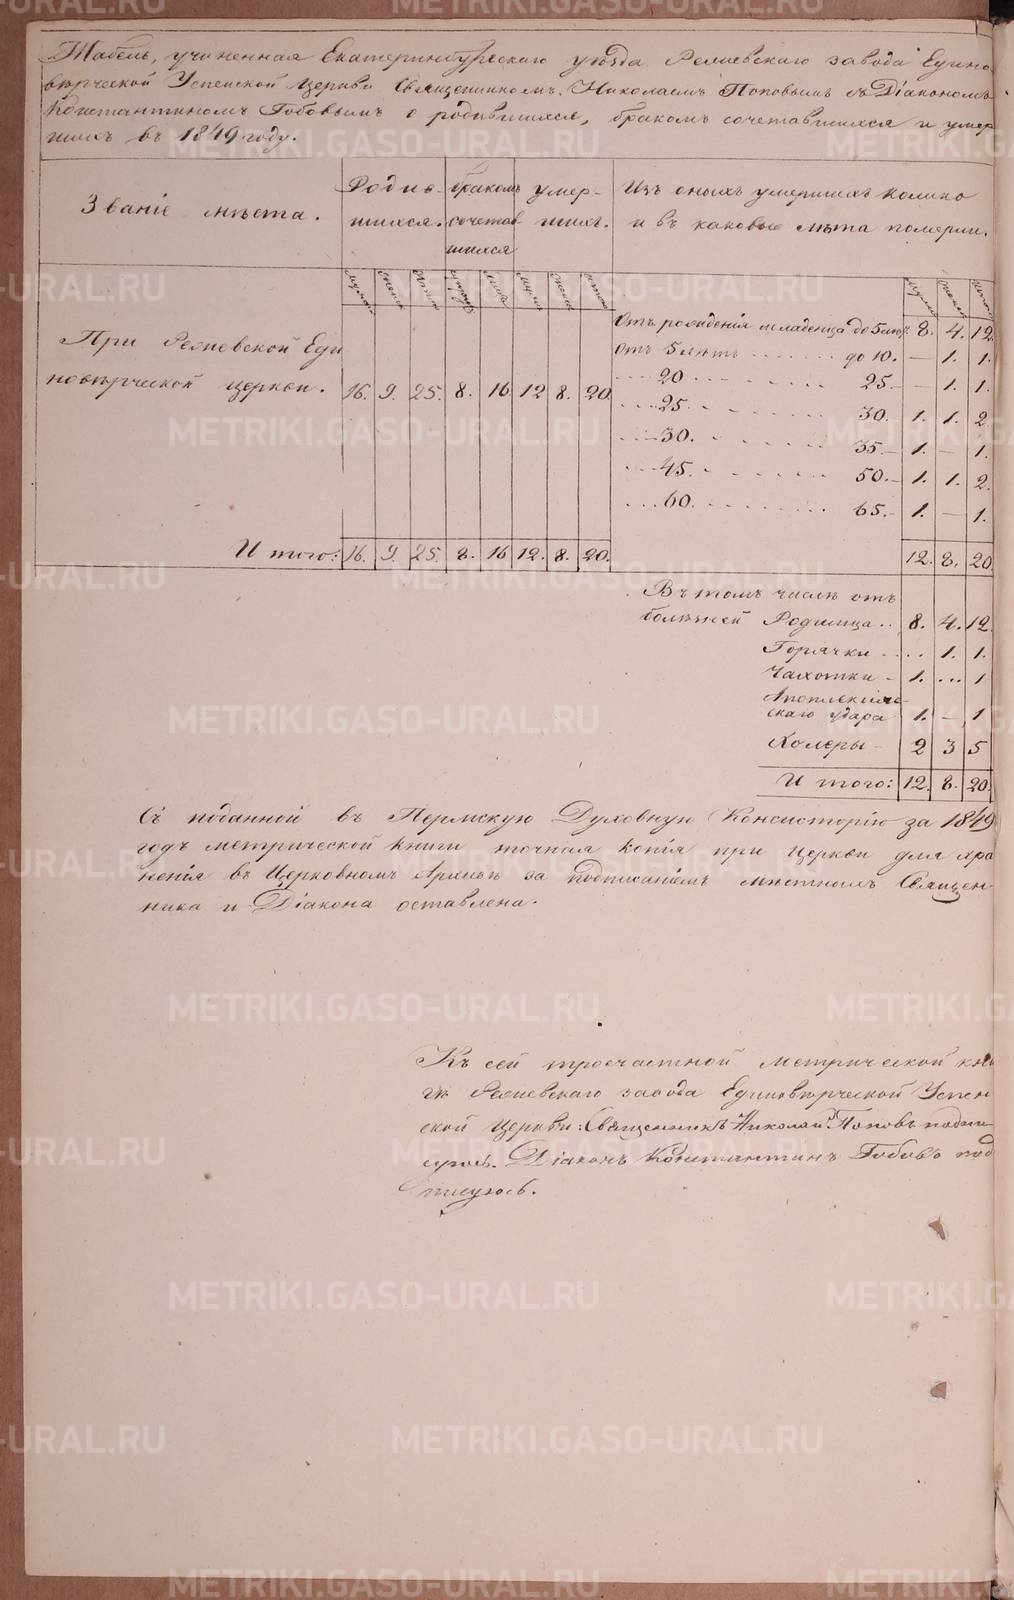 Табель, учиненная Екатеринбургскаго уѣзда Режевскаго завода Едино-
вѣрческой Успенской Церкви Священникомъ Николаемъ Поповымъ и Діакономъ
Константиномъ Гобовымъ о родившихся, бракомъ сочетавшихся и умер
шихъ въ 1849 году.
Званіе мѣста.
Родив-
шихся.
бракомъ
сочетав
шихся
умер-
шихъ.
Изъ оныхъ умершихъ колико
и въ каковые лѣта померли.
При Режевской Еди
новѣрческой церкви. 16. 9. 25. 8. 16 12 8. 20.
Отъ рожденія младенца до 5 лѣтъ 8. 4. 12.
Отъ 5 лѣтъ ........ до 10. — 1. 1.
....20 ........ 25. — 1. 1.
....25. ........ 30. 1. 1. 2.
....30. ........ 35. 1. — 1.
....45. ........ 50. 1. 1. 2.
....60. ........ 65. 1. — 1.
И того: 16. 9. 25. 8. 16 12. 8. 20. 12. 8. 20.
Въ томъ числѣ отъ
болѣзней Родимца .. 8. 4. 12.
Горячки .... 1. 1.
Чахотки - 1. ... 1
Апоплексиче-
скаго удара 1. - 1
Холеры - 2 3 5
И того: 12. 8. 20.
Съ поданной въ Пермскую Духовную Консисторію за 1849
годъ метрической книги точная копія при церкви для хра
ненія въ Церковномъ Архивѣ за подписаніемъ мѣстныхъ Священ-
ника и Діакона оставлена.
Къ сей троечастной метрической кни
гѣ Режевскаго завода Единовѣрческой Успен
ской Церкви: Священникъ Николай Поповъ подпи-
суюсь. Діаконъ Константинъ Гобовъ под
писуюсь.
METRIKI.GASO-URAL.RU